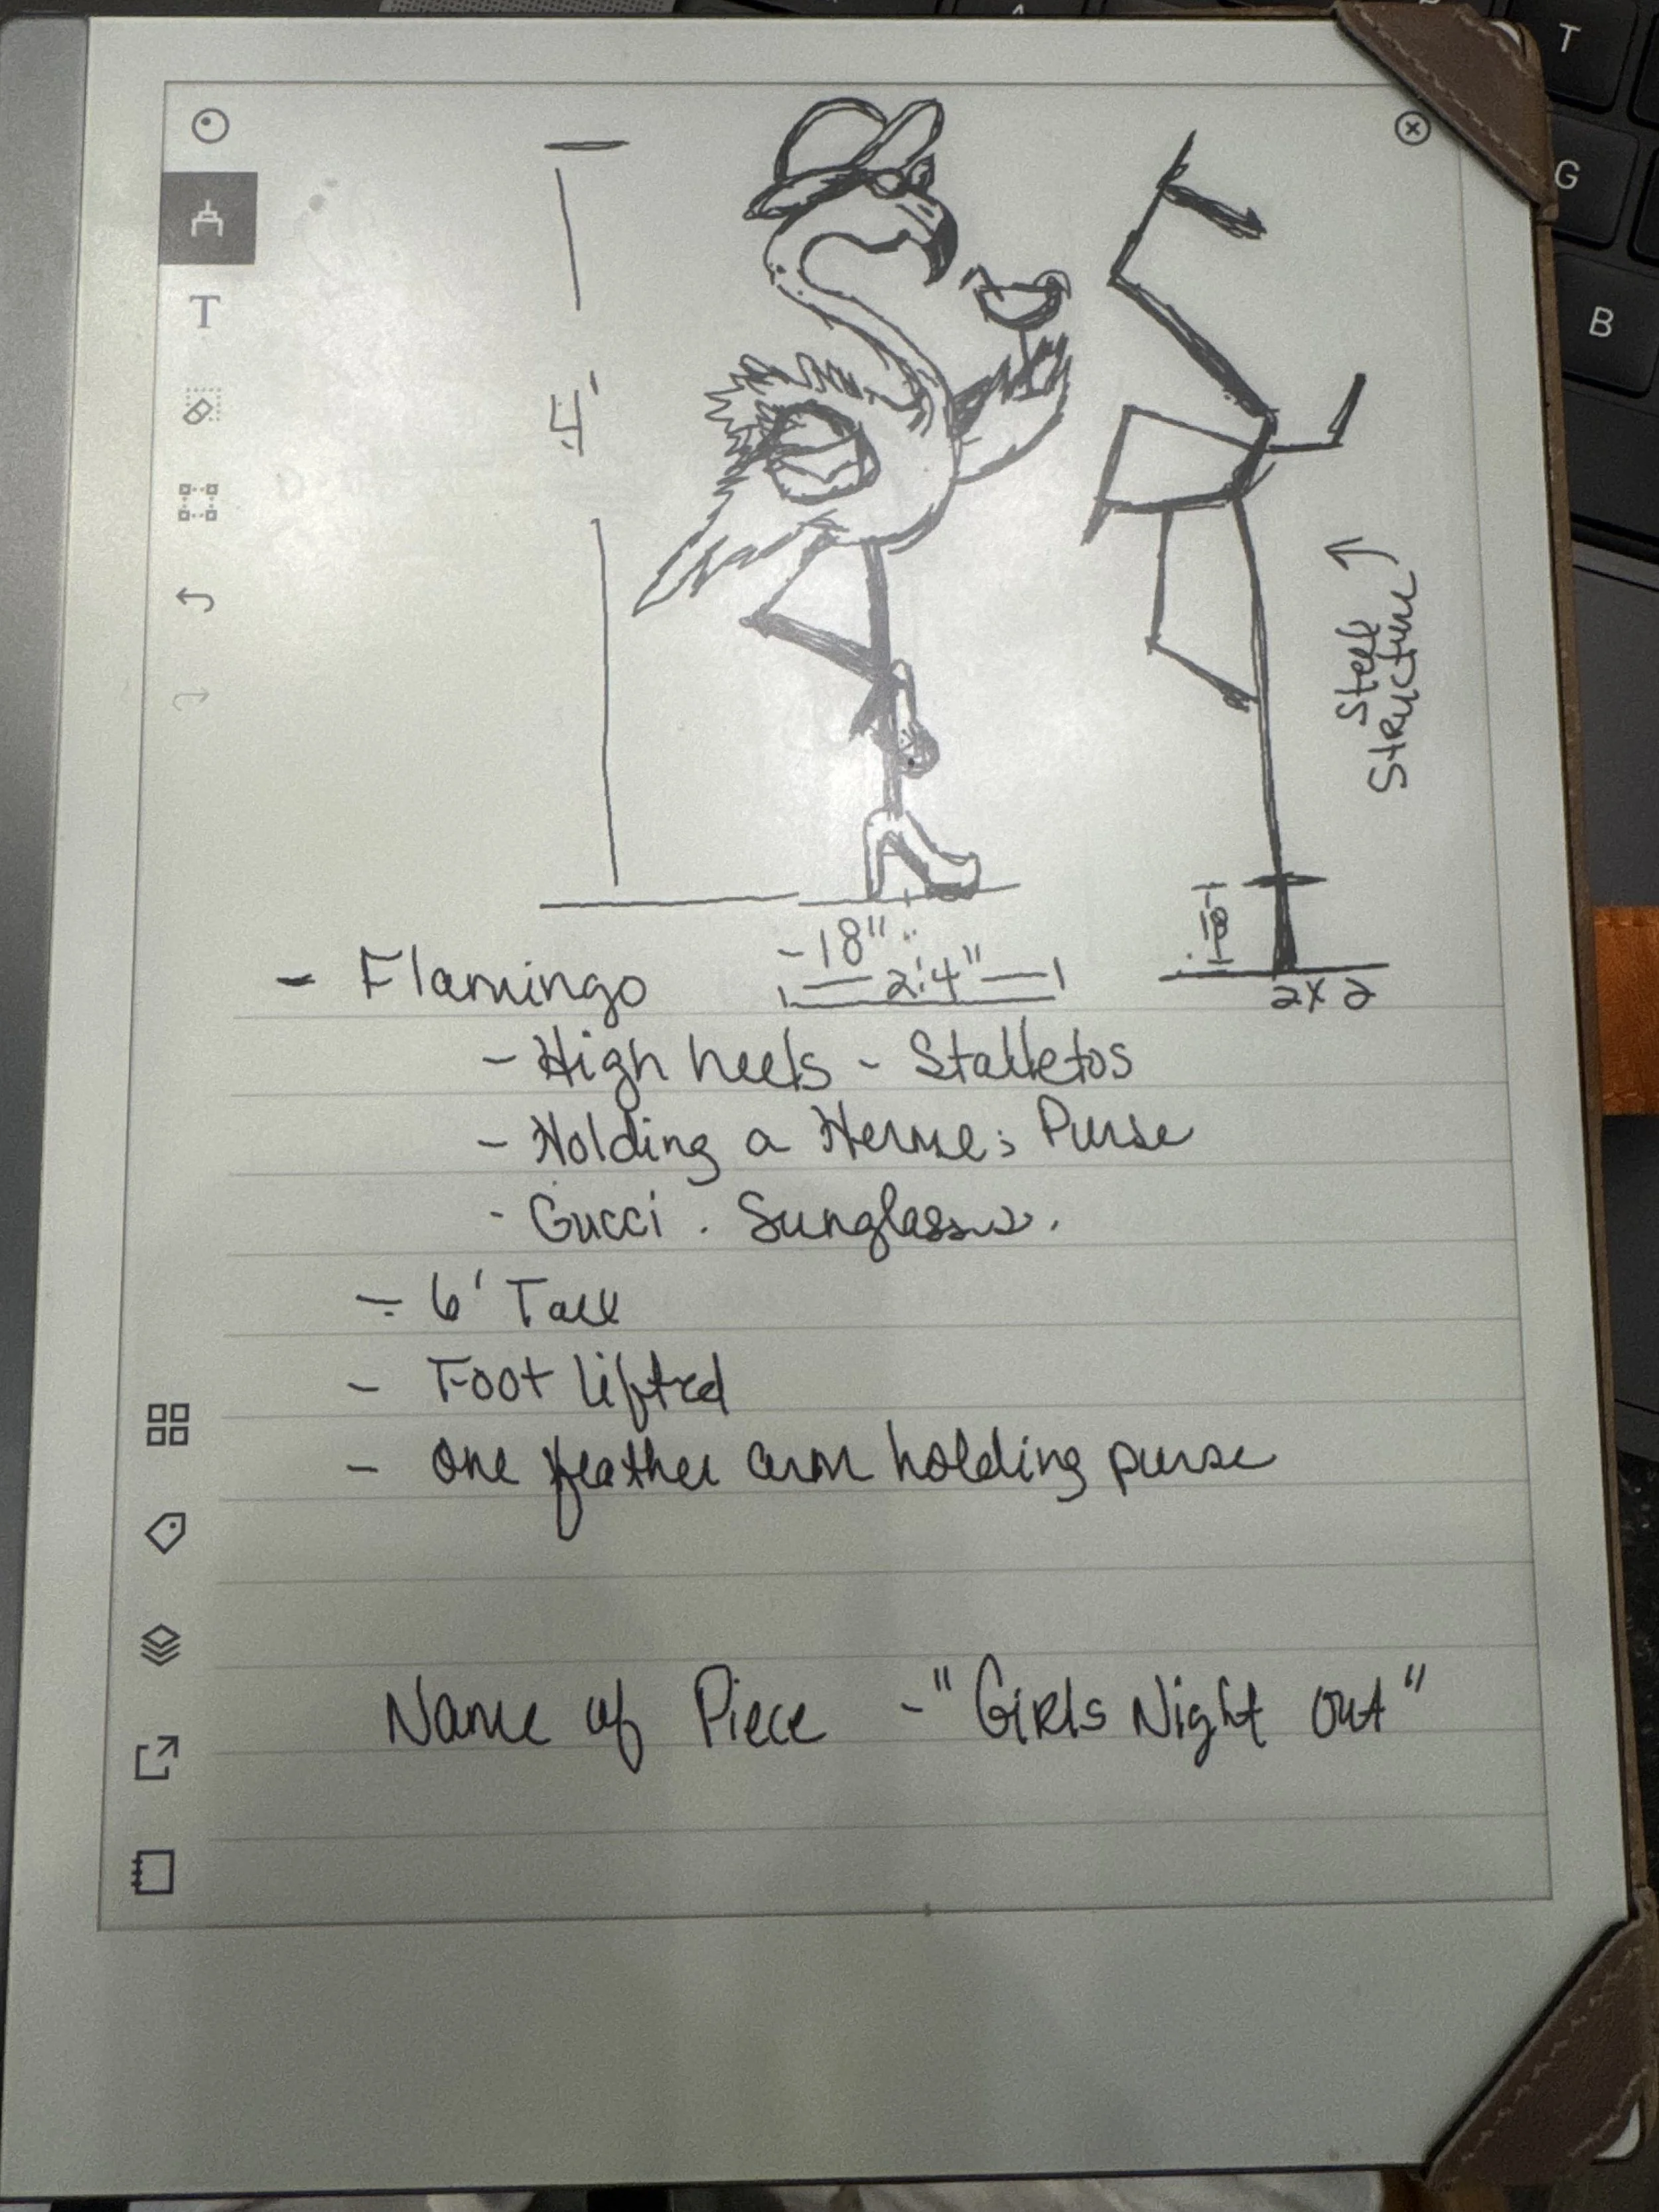 T
G
B
T
4'
Steel
Structure
18"
18
2'4"
2x2
- Flamingo
- High heels - Stalletos
- Holding a Hermes Purse
- Gucci . Sunglasses.
- 6' Tall
- Foot lifted
- One feather arm holding purse
Name of Piece - "Girls Night Out"